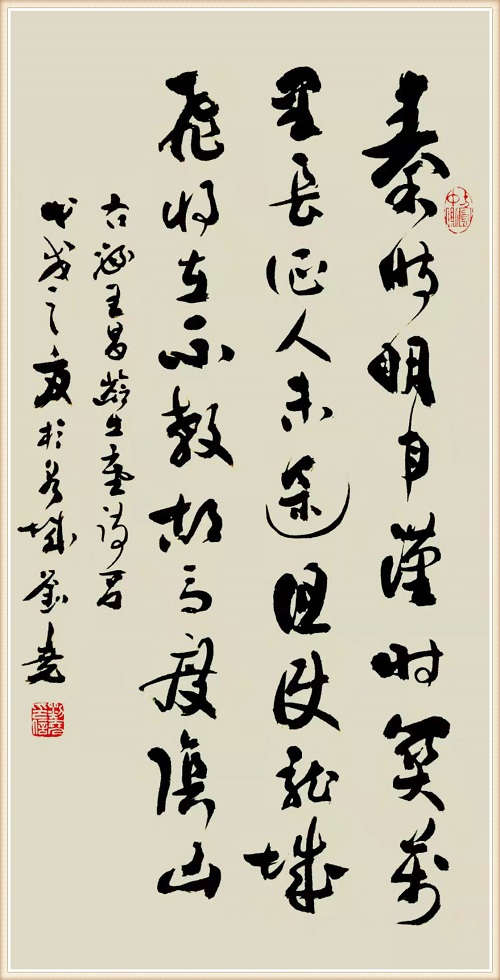 秦時明月漢时関萬
里長征人未還但使龍城
飛将在不教胡馬度陰山
右録王昌齡出塞詩首
戊戌之夏於蓉城劉堯